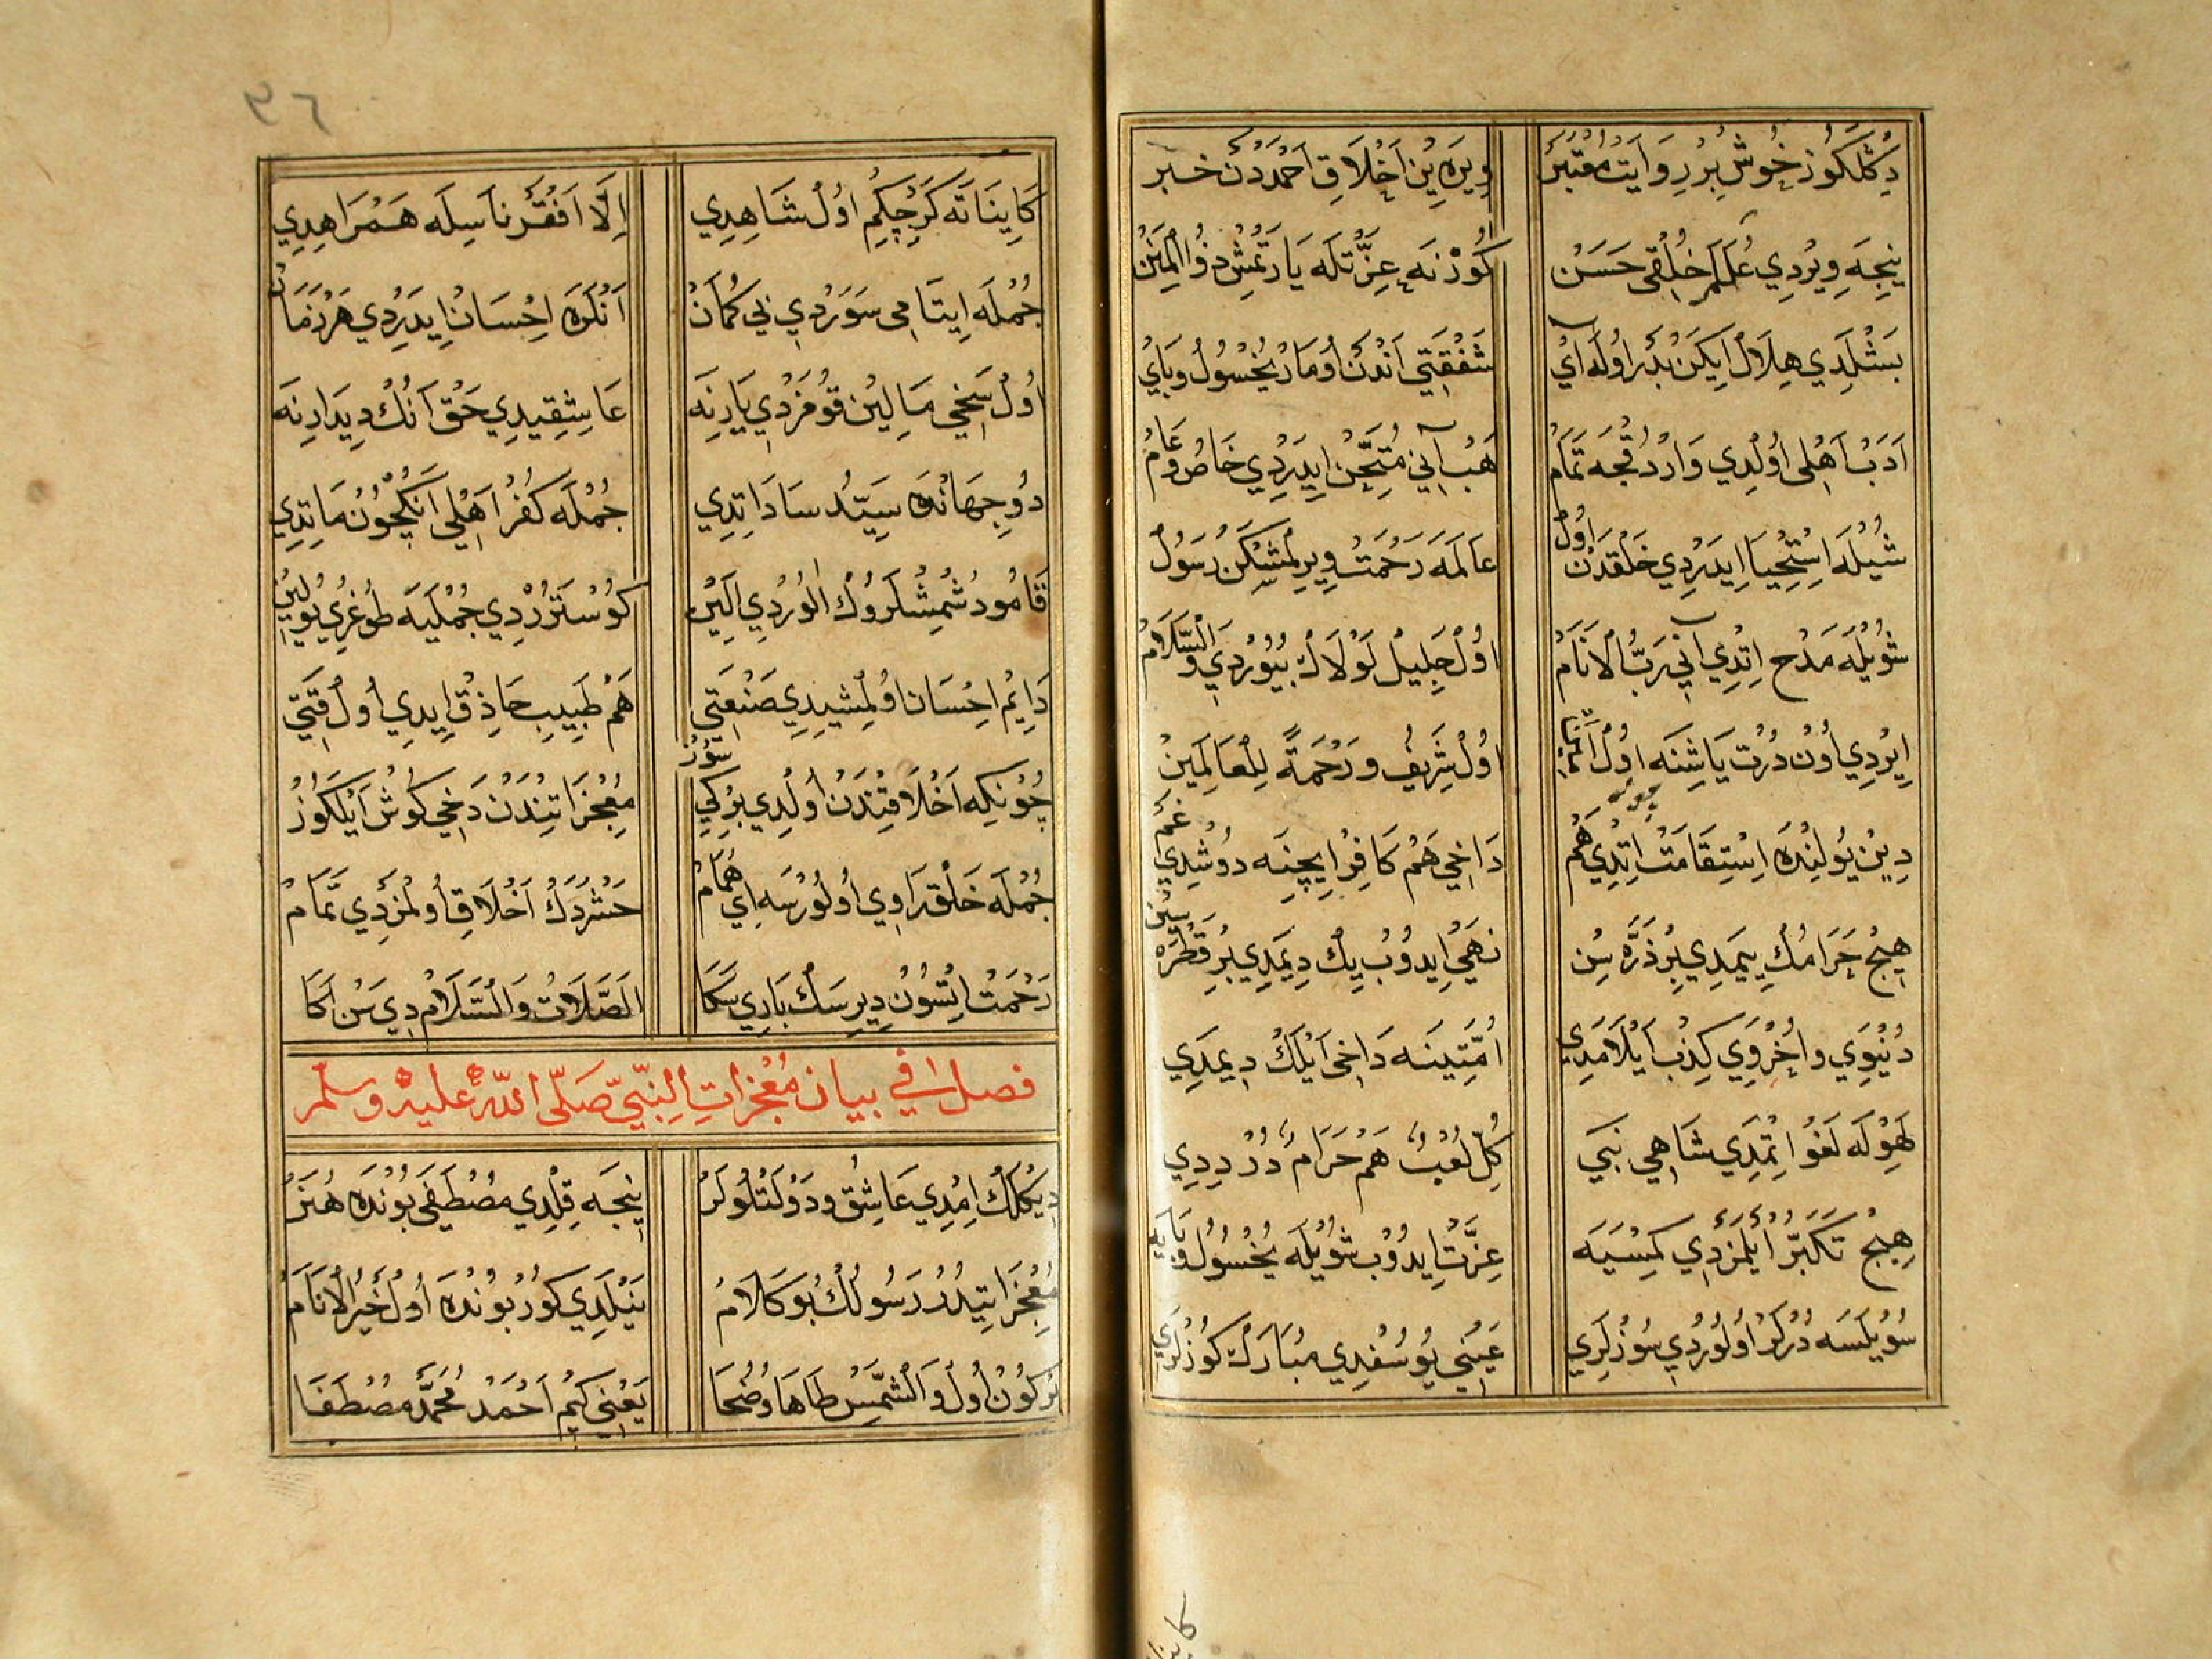 دكلكوز خوش بر روايت معتبر
ويره ين اخلاق احمددن خبر
نيجه ويردي علمله خلقى حسن
كور نه عزتله ياردتمش ذوالمنن
بسلدي هلال ايكن بدر اوله آي
شفقتى اندن اومار يخسول وباي
ادب اهلى اولدي واردقجه تمام
هب آني متحن ايدردي خاص وعام
شيله استحيا ايدردي خلقدن اول
عالمه رحمت ويرلمشكن رسول
شويله مدح اتدي آني رب الانام
اول جليل لولاك بيوردي والسلام
ايردي اون درت ياشنه اول
اول شريف ورحمة للعالمين
دين يولنده استقامت اتدي هم
داخي هم كافر ايچنه دوشدي غم
هيچ حرامك ييمدي بر ذره سن
نهي ايدوب يك ديمدي بر قطره سين
دنيوي واخروي كذب ايلامدي
امتينه داخى ايلك ديمدي
لهوله لغو اتمدي شاهي نبي
كل لعب هم حرام در ديدي
هيچ تكبر ايلمزدي كمسيه
عزت ايدوب شويله يخسول وبايه
سويلسه دركر اولوردي سوزلري
عيني يوسفدي مبارك كوزلري
كا ينا
٣٦
كايناته كرچكم اول شاهدي
الا افقر ناسله همراهدي
جمله ايتامى سوردي بي كمان
انلره احسان ايدردي هر زمان
اول سخي مالين قومزدي يارينه
عاشقيدي حق انك ديدارنه
دو جهانده سيد ساداتدي
جمله كفر اهلي انكچون ماتدي
قامو دشمشلروك الوردي الين
كوستردي جمليه طوغري يولين
دايم احسان اولمشيدي صنعتي
هم طبيب حاذق ايدي اول قتي
چونكه اخلاقندن اولدي بركي سوز
معجزاتندن دخي كوش ايلكوز
جمله خلقه راوي اولورسه اي همام
حشردك اخلاق اولمزدي تمام
رحمت اتسون ديرسك باري سكا
الصلات والسلام دي سن اكا
فصل في بيان معجزات النبي صلى الله عليه وسلم
ديكلك امدي عاشق ودولتلولر
نيجه قلدي مصطفى بونده هنر
معجزاتيدر رسولك بو كلام
نيلدي كور بونده اول خير الانام
بركون اول والشمس طاها وضحا
يعني كيم احمد محمد مصطفا